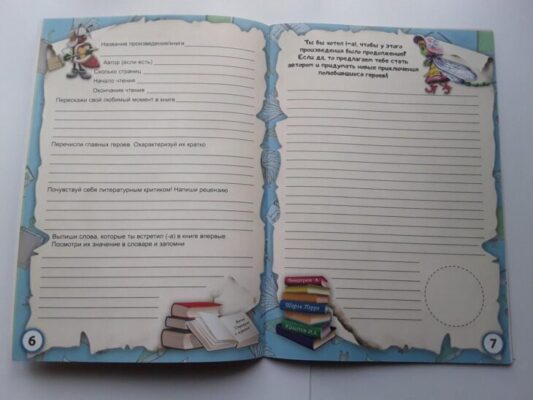 Название произведения/книги
Автор (если есть)
Сколько страниц
Начало чтения
Окончание чтения
Перескажи свой любимый момент в книге
Перечисли главных героев. Охарактеризуй их кратко
Почувствуй себя литературным критиком! Напиши рецензию
Выпиши слова, которые ты встретил (-а) в книге впервые.
Посмотри их значение в словаре и запомни
6
Ты бы хотел (-а), чтобы у этого
произведения было продолжение?
Если да, то предлагаем тебе стать
автором и придумать новые приключения
полюбившихся героев!
Шарль Перро
Крылов И.А.
7